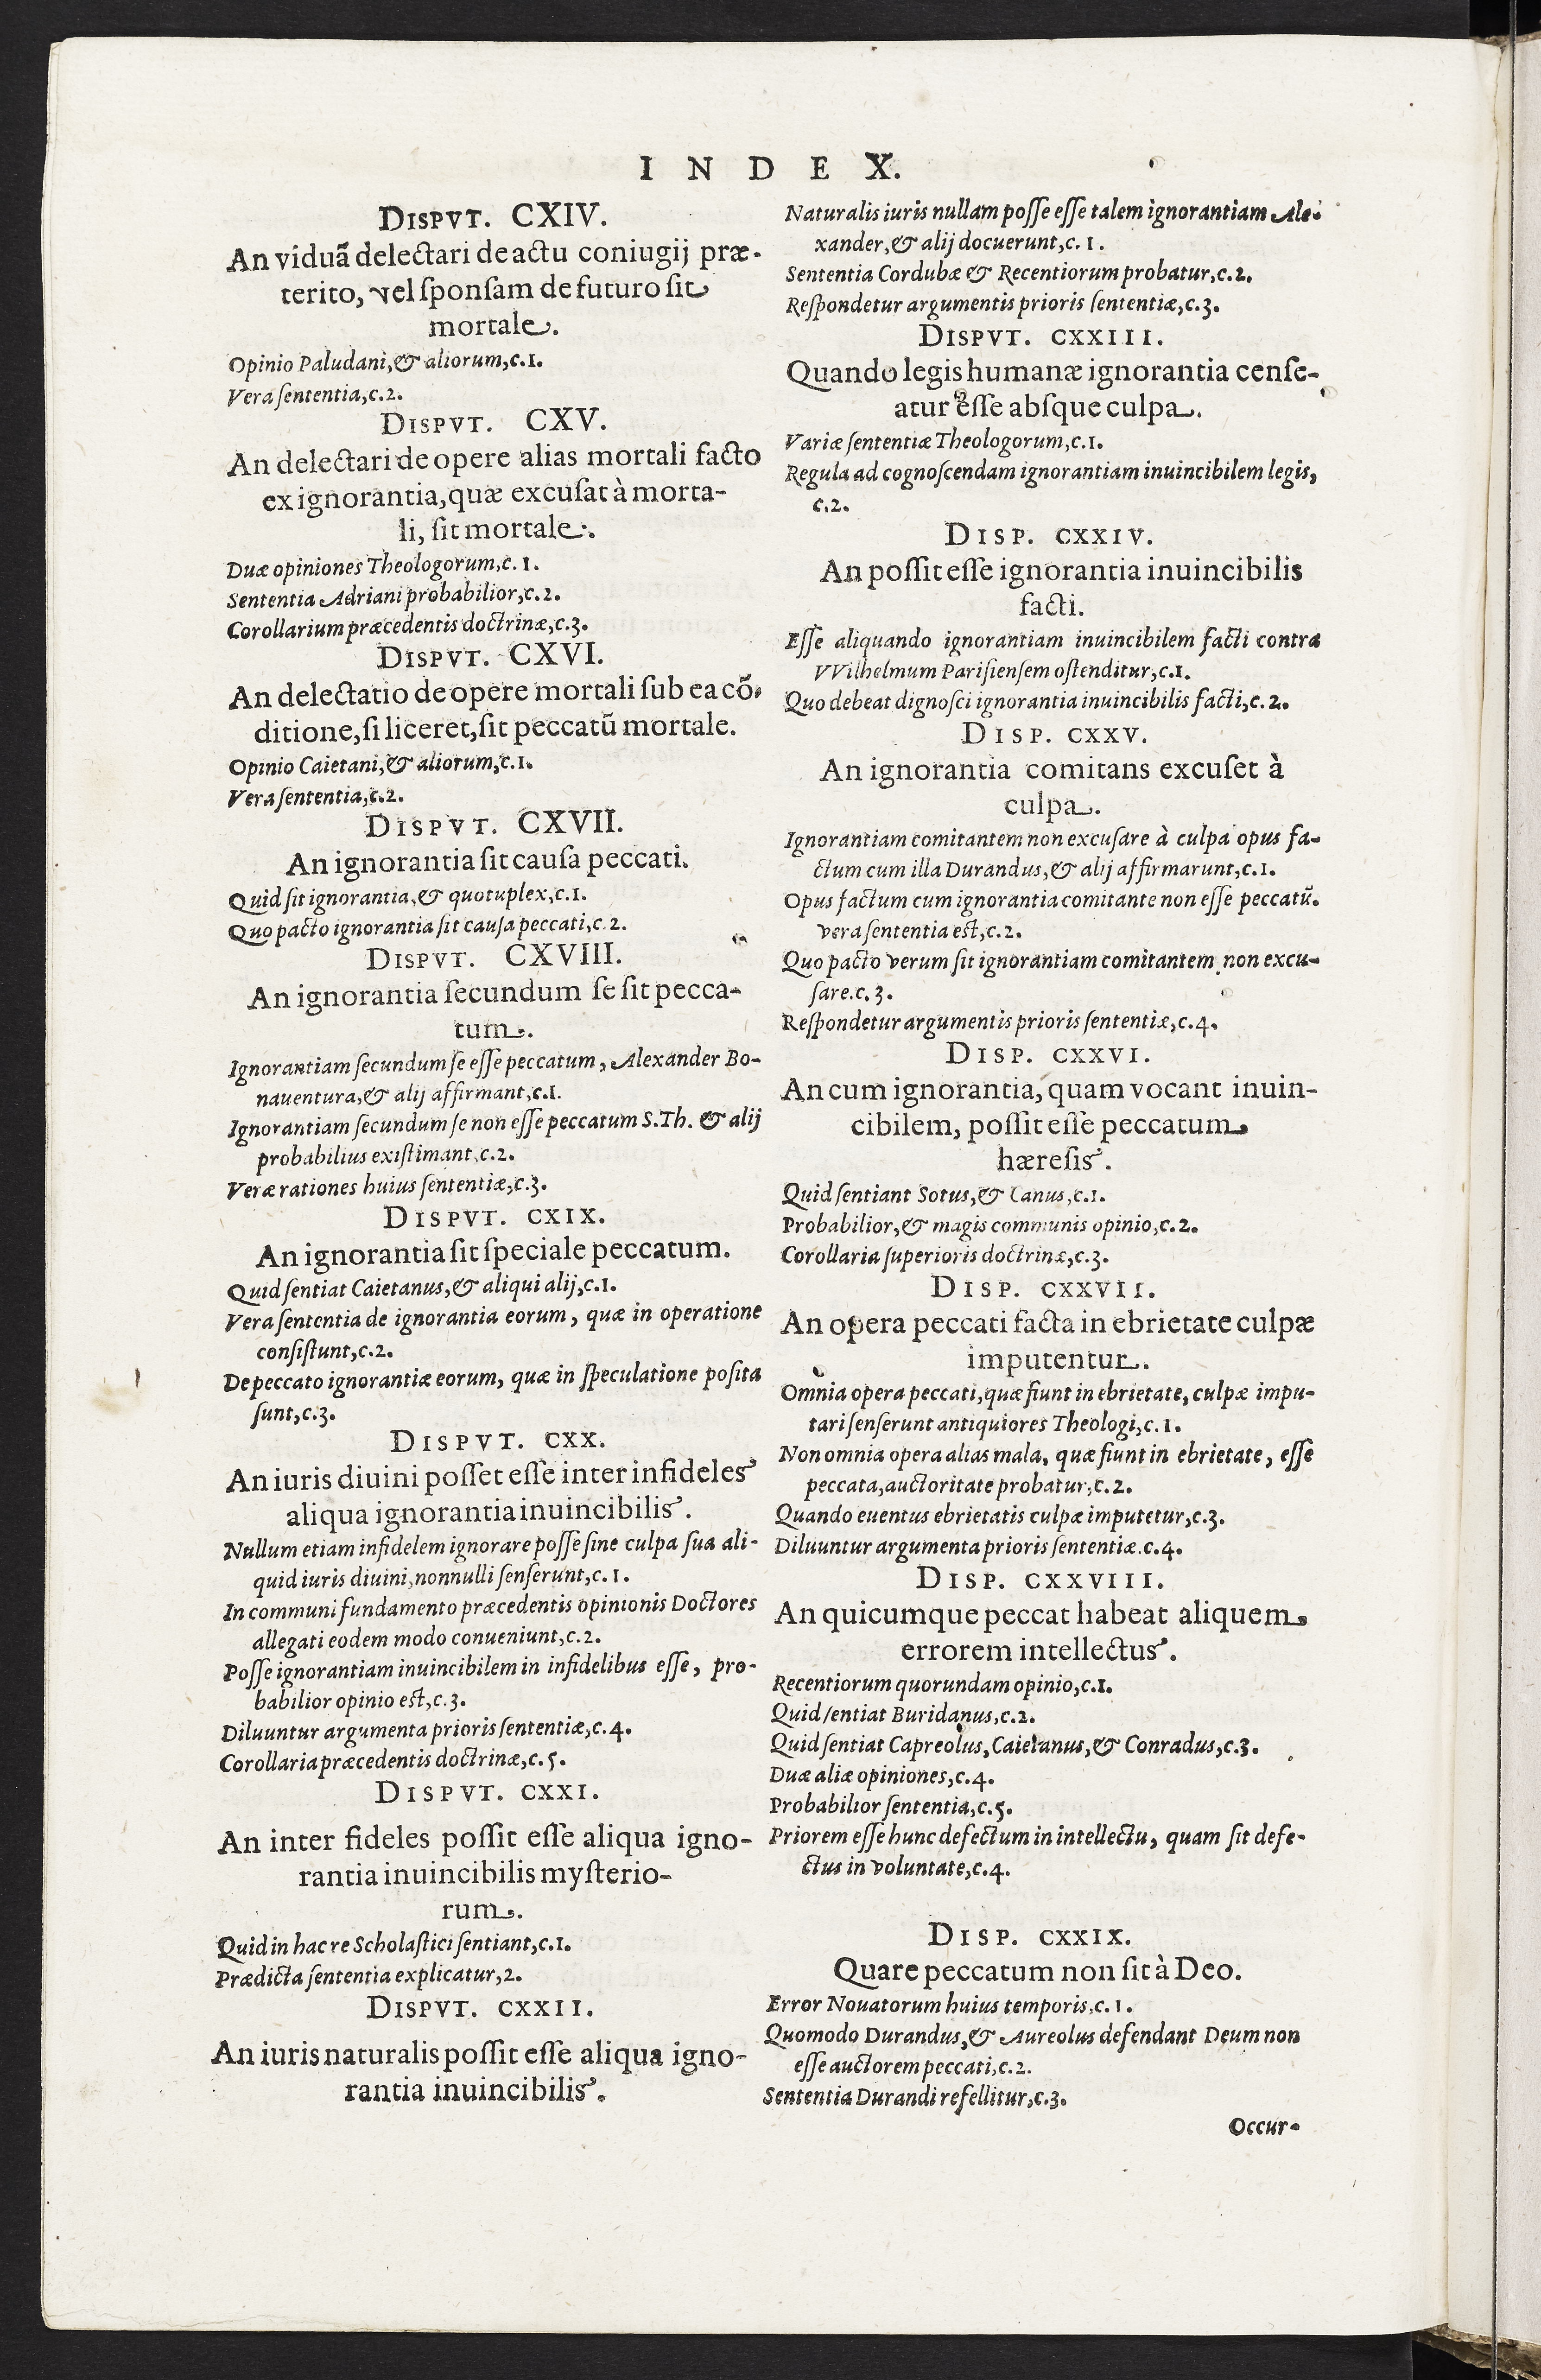 INDEX.
DISPVT. CXIV.
An viduã delectari de actu coniugij præ-
terito, vel ſponſam de futuro ſit
mortale.
Opinio Paludani, & aliorum, c.1.
Vera ſententia, c.2.
DISPVT. CXV.
An delectari de opere alias mortali facto
ex ignorantia, quæ excuſat à morta-
li, ſit mortale.
Duæ opiniones Theologorum, c. 1.
Sententia Adriani probabilior, c.2.
Corollarium præcedentis doctrinæ, c.3.
DISPVT. CXVI.
An delectatio de opere mortali ſub ea cõ-
ditione, ſi liceret, ſit peccatũ mortale.
Opinio Caietani, & aliorum, c.1.
Vera ſententia, c.2.
DISPVT. CXVII.
An ignorantia ſit cauſa peccati.
Quid ſit ignorantia, & quotuplex, c.1.
Quo pacto ignorantia ſit cauſa peccati, c.2.
DISPVT. CXVIII.
An ignorantia ſecundum ſe ſit pecca-
tum.
Ignorantiam ſecundum ſe eſſe peccatum, Alexander Bo-
nauentura, & alij affirmant, c.1.
Ignorantiam ſecundum ſe non eſſe peccatum S.Th. & alij
probabilius exiſtimant, c.2.
Veræ rationes huius ſententiæ, c.3.
DISPVT. CXIX.
An ignorantia ſit ſpeciale peccatum.
Quid ſentiat Caietanus, & aliqui alij, c.1.
Vera ſententia de ignorantia eorum, quæ in operatione
conſiſtunt, c.2.
De peccato ignorantiæ eorum, quæ in ſpeculatione poſita
ſunt, c.3.
DISPVT. CXX.
An iuris diuini poſſet eſſe inter infideles
aliqua ignorantia inuincibilis.
Nullum etiam infidelem ignorare poſſe ſine culpa ſua ali-
quid iuris diuini, nonnulli ſenſerunt, c. 1.
In communi fundamento præcedentis opinionis Doctores
allegati eodem modo conueniunt, c.2.
Poſſe ignorantiam inuincibilem in infidelibus eſſe, pro-
babilior opinio est, c.3.
Diluuntur argumenta prioris ſententiæ, c. 4.
Corollaria præcedentis doctrinæ, c. 5.
DISPVT. CXXI.
An inter fideles poſſit eſſe aliqua igno-
rantia inuincibilis myſterio-
rum.
Quid in hac re Scholaſtici ſentiant, c.1.
Prædicta ſententia explicatur, 2.
DISPVT. CXXII.
An iuris naturalis poſſit eſſe aliqua igno-
rantia inuincibilis.
Naturalis iuris nullam poſſe eſſe talem ignorantiam Ale-
xander, & alij docuerunt, c. 1.
Sententia Cordubæ & Recentiorum probatur, c.2.
Reſpondetur argumentis prioris ſententiæ, c.3.
DISPVT. CXXIII.
Quando legis humanæ ignorantia cenſe-
atur eſſe abſque culpa.
Variæ ſententiæ Theologorum, c.1.
Regula ad cognoſcendam ignorantiam inuincibilem legis,
c.2.
DISP. CXXIV.
An poſſit eſſe ignorantia inuincibilis
facti.
Eſſe aliquando ignorantiam inuincibilem facti contra
VVilhelmum Pariſienſem oſtenditur, c.1.
Quo debeat dignoſci ignorantia inuincibilis facti, c.2.
DISP. CXXV.
An ignorantia comitans excuſet à
culpa.
Ignorantiam comitantem non excuſare à culpa opus fa-
ctum cum illa Durandus, & alij affirmarunt, c.1.
Opus factum cum ignorantia comitante non eſſe peccatũ.
vera ſententia est, c.2.
Quo pacto verum ſit ignorantiam comitantem non excu-
ſare. c. 3.
Reſpondetur argumentis prioris ſententiæ, c.4.
DISP. CXXVI.
An cum ignorantia, quam vocant inuin-
cibilem, poſſit eſſe peccatum
hæreſis.
Quid ſentiant Sotus, & Canus, c.1.
Probabilior, & magis communis opinio, c.2.
Corollaria ſuperioris doctrinæ, c.3.
DISP. CXXVII.
An opera peccati facta in ebrietate culpæ
imputentur.
Omnia opera peccati, quæ fiunt in ebrietate, culpæ impu-
tari ſenſerunt antiquiores Theologi, c. 1.
Non omnia opera alias mala, quæ fiunt in ebrietate, eſſe
peccata, auctoritate probatur, c.2.
Quando euentus ebrietatis culpæ imputetur, c.3.
Diluuntur argumenta prioris ſententiæ. c.4.
DISP. CXXVIII.
An quicumque peccat habeat aliquem
errorem intellectus.
Recentiorum quorundam opinio, c.1.
Quid ſentiat Buridanus, c.2.
Quid ſentiat Capreolus, Caietanus, & Conradus, c.3.
Duæ aliæ opiniones, c.4.
Probabilior ſententia, c.5.
Priorem eſſe hunc defectum in intellectu, quam ſit defe-
ctus in voluntate, c.4.
DISP. CXXIX.
Quare peccatum non ſit à Deo.
Error Nouatorum huius temporis, c. 1.
Quomodo Durandus, & Aureolus defendant Deum non
eſſe auctorem peccati, c.2.
Sententia Durandi refellitur, c.3.
Occur-